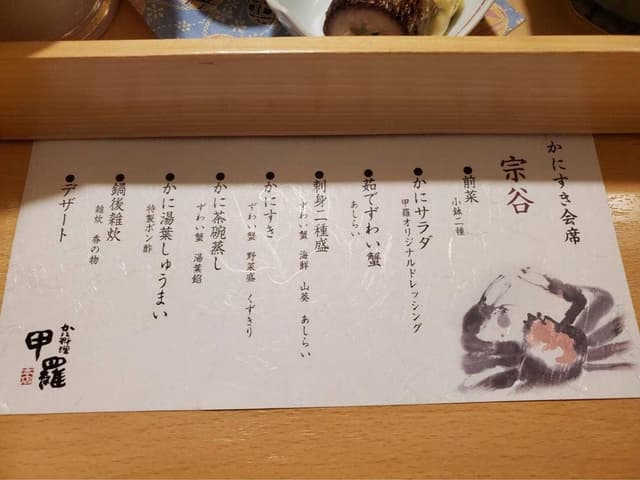 かにすき会席
宗谷
●前菜
小鉢二種
●かにサラダ
甲羅オリジナルドレッシング
●茹でずわい蟹
あしらい
●刺身二種盛
ずわい蟹 海鮮 山葵 あしらい
●かにすき
ずわい蟹 野菜盛 くずきり
●かに茶碗蒸し
ずわい蟹 湯葉餡
●かに湯葉しゅうまい
特製ポン酢
●鍋後雑炊
雑炊 香の物
●デザート
かに料理
甲羅
本店